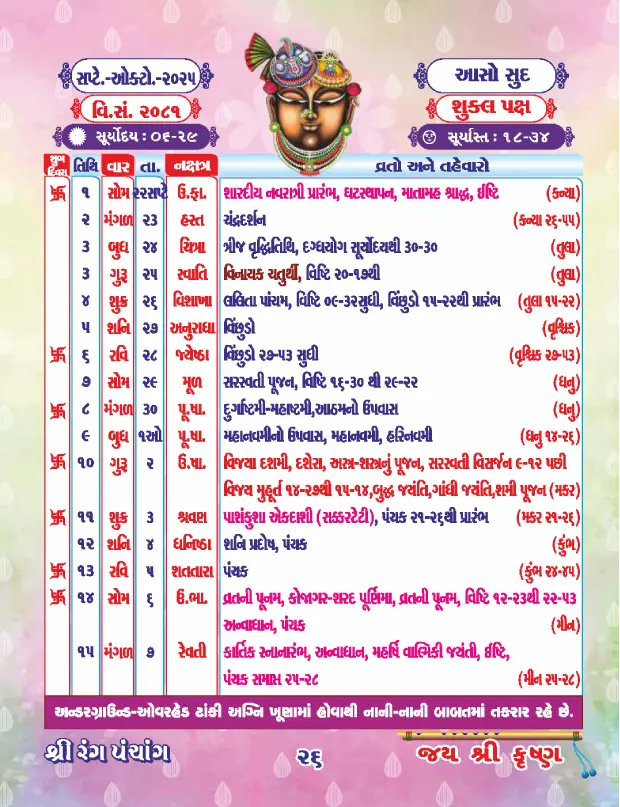 સપ્ટે.-ઓક્ટો.-૨૦૨૫
આસો સુદ
વિ.સં. ૨૦૮૧
શુક્લ પક્ષ
સૂર્યોદય : ૦૬-૨૯
સૂર્યાસ્ત : ૧૮-૩૪
શુભ દિવસ તિથિ વાર તા. નક્ષત્ર વ્રતો અને તહેવારો
卐 ૧ સોમ ૨૨સપ્ટે ઉ.ફા. શારદીય નવરાત્રી પ્રારંભ, ઘટસ્થાપન, માતામહ શ્રાદ્ધ, ઈષ્ટિ (કન્યા)
૨ મંગળ ૨૩ હસ્ત ચંદ્રદર્શન (કન્યા ૨૬-૫૫)
૩ બુધ ૨૪ ચિત્રા ત્રીજ વૃદ્ધિતિથિ, દગ્ધયોગ સૂર્યોદયથી ૩૦-૩૦ (તુલા)
૩ ગુરૂ ૨૫ સ્વાતિ વિનાયક ચતુર્થી, વિષ્ટિ ૨૦-૧૭થી (તુલા)
૪ શુક્ર ૨૬ વિશાખા લલિતા પાંચમ, વિષ્ટિ ૦૯-૩૨સુધી, વિંછુડો ૧૫-૨૨થી પ્રારંભ (તુલા ૧૫-૨૨)
૫ શનિ ૨૭ અનુરાધા વિંછુડો (વૃશ્ચિક)
卐 ૬ રવિ ૨૮ જ્યેષ્ઠા વિંછુડો ૨૭-૫૩ સુધી (વૃશ્ચિક ૨૭-૫૩)
૭ સોમ ૨૯ મૂળ સરસ્વતી પૂજન, વિષ્ટિ ૧૬-૩૦ થી ૨૯-૨૨ (ધનુ)
卐 ૮ મંગળ ૩૦ પૂ.ષા. દુર્ગાષ્ટમી-મહાષ્ટમી,આઠમનો ઉપવાસ (ધનુ)
૯ બુધ ૧ઓ પૂ.ષા. મહાનવમીનો ઉપવાસ, મહાનવમી, હરિનવમી (ધનુ ૧૪-૨૬)
卐 ૧૦ ગુરૂ ૨ ઉ.ષા. વિજયા દશમી, દશેરા, અસ્ત્ર-શસ્ત્રનું પૂજન, સરસ્વતી વિસર્જન ૯-૧૨ પછી
વિજય મુહૂર્ત ૧૪-૨૭થી ૧૫-૧૪,બુદ્ધ જયંતિ,ગાંધી જયંતિ,શમી પૂજન (મકર)
卐 ૧૧ શુક્ર ૩ શ્રવણ પાશંકુશા એકદાશી (સક્કરટેટી), પંચક ૨૧-૨૬થી પ્રારંભ (મકર ૨૧-૨૬)
૧૨ શનિ ૪ ધનિષ્ઠા શનિ પ્રદોષ, પંચક (કુંભ)
卐 ૧૩ રવિ ૫ શતતારા પંચક (કુંભ ૨૪-૪૫)
卐 ૧૪ સોમ ૬ ઉ.ભા. વ્રતની પૂનમ, કોજાગર-શરદ પૂર્ણિમા, વ્રતની પૂનમ, વિષ્ટિ ૧૨-૨૩થી ૨૨-૫૩
અન્વાધાન, પંચક (મીન)
૧૫ મંગળ ૭ રેવતી કાર્તિક સ્નાનારંભ, અન્વાધાન, મહર્ષિ વાલ્મિકી જયંતી, ઈષ્ટિ,
પંચક સમાપ્ત ૨૫-૨૮ (મીન ૨૫-૨૮)
અન્ડરગ્રાઉન્ડ-ઓવરહેડ ટાંકી અગ્નિ ખૂણામાં હોવાથી નાની-નાની બાબતમાં તકરાર રહે છે.
શ્રી રંગ પંચાંગ
૨૬
જય શ્રી કૃષ્ણ